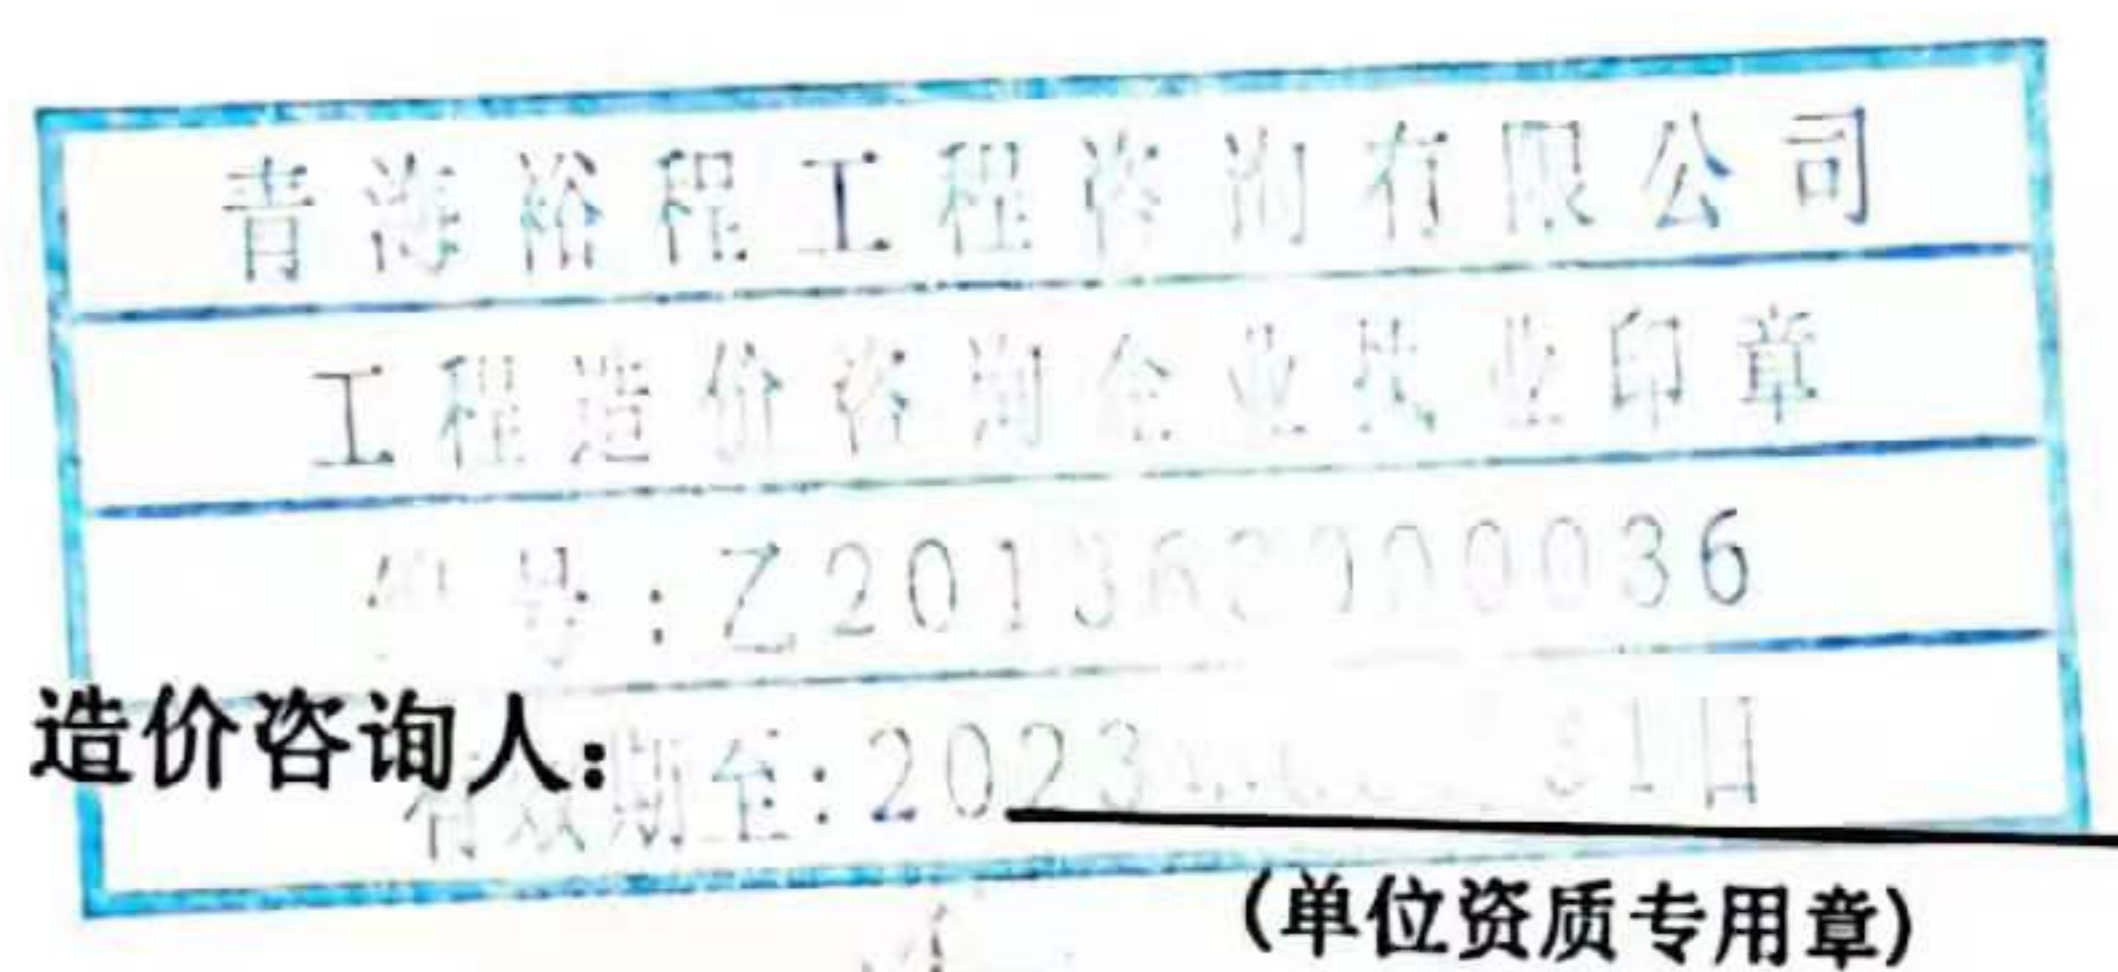 青海裕程工程咨询有限公司
工程造价咨询企业执业印章
编号:乙201363000036
造价咨询人:
有效期至:2023 31日
(单位资质专用章)